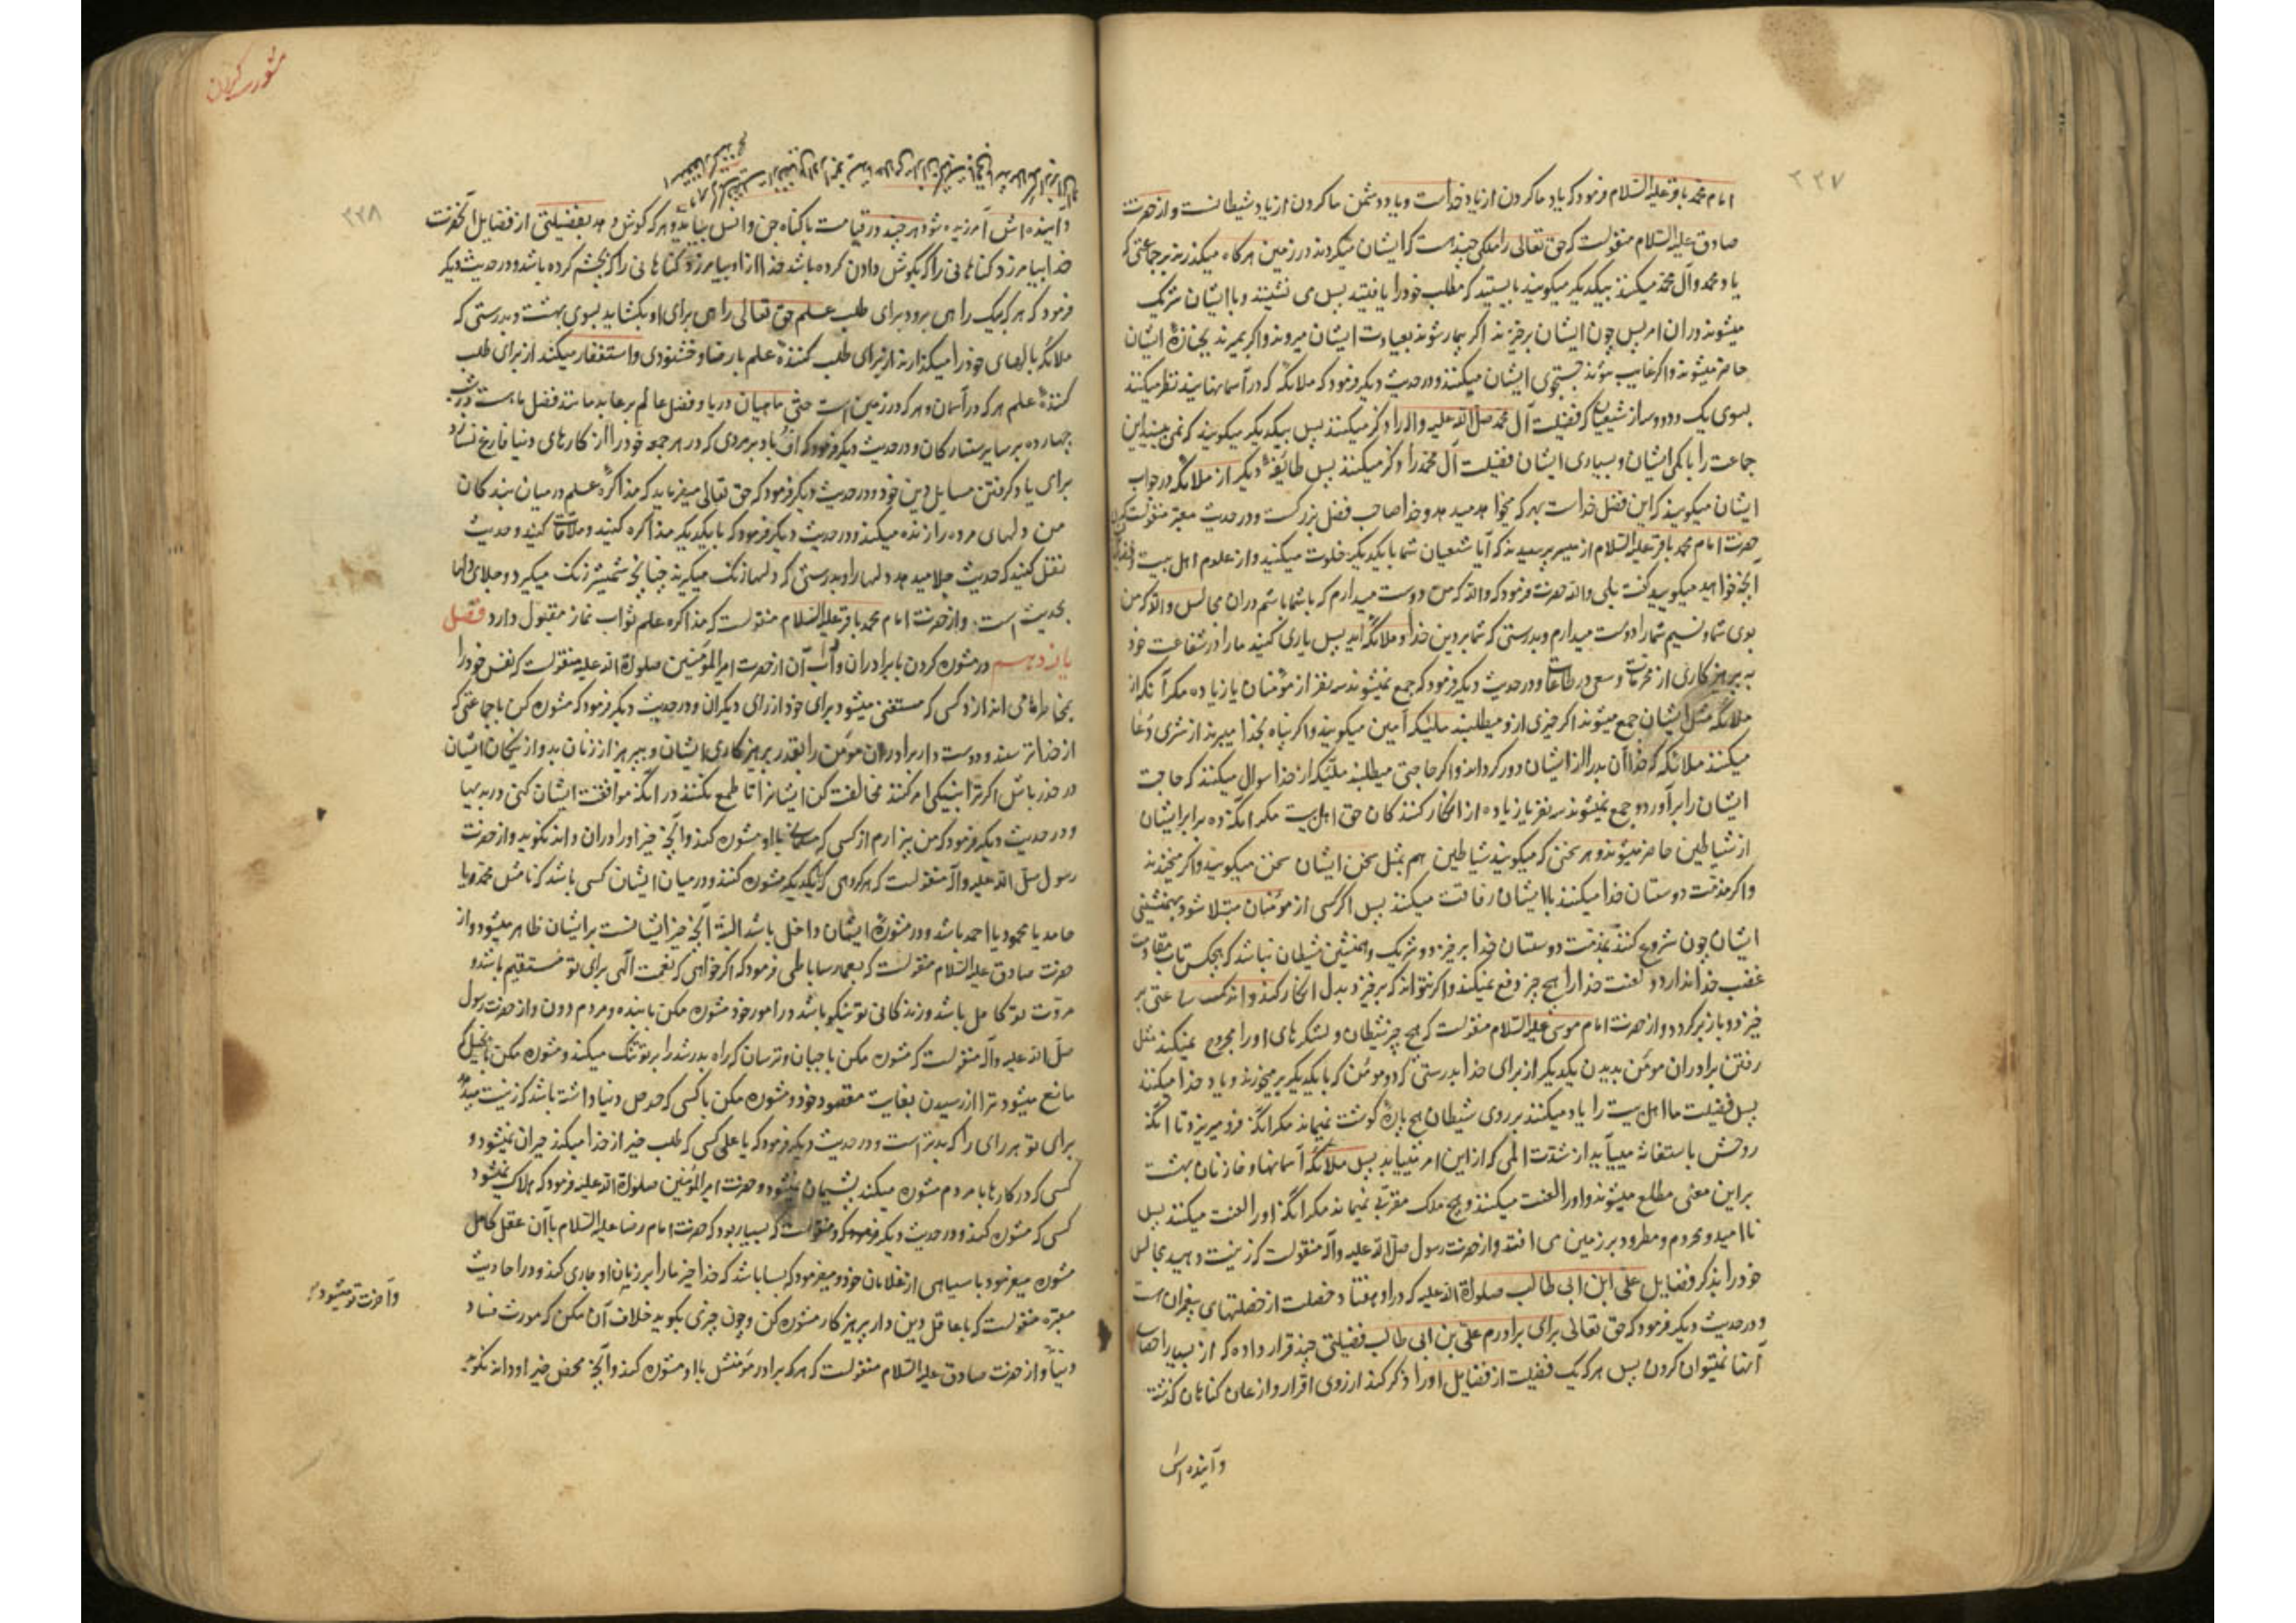 ۲۲۷
امام محمد باقر علیه السلام فرمود که یاد ما کردن از یاد خداست و یاد دشمن ما کردن از یاد شیطانست و از حضرت
صادق علیه السلام منقولست که حق تعالی را ملکی چند هست که ایشان میگردند در زمین هرگاه میگذرند بر جماعتی که
یاد محمد و آل محمد میکنند بیکدیگر میگویند بایستید که مطلب خود را یافتید پس می نشینند و با ایشان شریک
میشوند در ان امر پس چون ایشان برخیزند اگر بیمار شوند بعیادت ایشان میروند و اگر بمیرند بجنازه ایشان
حاضر میشوند و اگر غایب شوند جستجوی ایشان میکنند و در حدیث دیگر فرمود که ملائکه که در آسمانهایند نظر میکنند
بسوی یک و دو و سه از شیعیان که فضیلت آل محمد صلی الله علیه واله را ذکر میکنند پس بیکدیگر میگویند که نمی بینید این
جماعت را با کمی ایشان و بسیاری ایشان فضیلت آل محمد را ذکر میکنند پس طایفه دیگر از ملائکه در جواب
ایشان میگویند که این فضل خداست بهر که میخواهد میدهد و خدا صاحب فضل بزرگست و در حدیث معتبر منقولست که
حضرت امام محمد باقر علیه السلام از میسر پرسیدند که آیا شیعیان شما با یکدیگر خلوت میکنید و از علوم اهل بیت
آنچه خواهید میگویید گفت بلی والله حضرت فرمود که والله که من دوست میدارم که با شما باشم در ان مجالس والله که من
بوی شما و نسیم شما را دوست میدارم و بدرستی که شما بر دین خدا و ملائکه اید پس یاری کنید ما را در شفاعت خود
به پرهیزکاری از محرمات و سعی در طاعات و در حدیث دیگر فرمود که جمع نمیشوند سه نفر از مؤمنان یا زیاده مگر آنکه از
ملائکه مثل ایشان جمع میشوند اگر خیری از او میطلبند ملیکه آمین میگویند و اگر پناه بخدا میبرند از شری دعا
میکنند ملائکه که خدا آن بد را از ایشان دور گرداند و اگر حاجتی میطلبند ملیکه از خدا سوال میکنند که حاجت
ایشان را برآورد و جمع نمیشوند سه نفر یا زیاده از انکار کنندکان حق اهل بیت مگر آنکه ده برابر ایشان
از شیاطین حاضر میشوند و هر سخنی که میگویند شیاطین هم بمثل سخن ایشان سخن میگویند و اگر میخندند
و اگر مذمت دوستان خدا میکنند با ایشان رفاقت میکنند پس اگر کسی از مومنان مبتلا شود بهمنشینی
ایشان چون شروع کنند بمذمت دوستان خدا برخیزد و شریک و همنشین شیطان نباشد که هیچکس تاب مقاومت
غضب خدا ندارد و لعنت خدا را هیچ چیز دفع نمیکند و اگر نتواند که برخیزد بدل انکار کند و اندک ساعتی بر
خیزد و باز برگردد و از حضرت امام موسی علیه السلام منقولست که هیچ چیز شیطان و لشکرهای او را مجروح نمیکند مثل
رفتن برادران مومن بدیدن یکدیگر از برای خدا بدرستی که دو مومن که با یکدیگر برمیخورند و یاد خدا میکنند
پس فضیلت ما اهل بیت را یاد میکنند بر روی شیطان هیچ پاره گوشت نمیماند مگر انکه فرو میریزد تا انکه
روحش باستغاثه میآید از شدت المی که از این امر میآید پس ملائکه آسمانها و خازنان بهشت
بر این معنی مطلع میشوند و او را لعنت میکنند و هیچ ملک مقربی نمیماند مگر انکه او را لعنت میکنند پس
نا امید و محروم و مطرود بر زمین می افتد و از حضرت رسول صلی الله علیه وآله منقولست که زینت دهید مجالس
خود را بذکر فضایل علی ابن ابی طالب صلوة الله علیه که در او هفتاد خصلت از خصلتهای پیغمبران است
و در حدیث دیگر فرمود که حق تعالی برای برادرم علی بن ابی طالب فضیلتی چند قرار داده که از بسیاری احصای
آنها نمیتوان کردن پس هر که یک فضیلت از فضایل او را ذکر کند از روی اقرار و اذعان گناهان گذشته
و آینده اش
مشورت کردن
۲۲۸
و آینده اش آمرزیده شود هر چند در قیامت با گناه جن و انس بیاید و هر که گوش دهد بفضیلتی از فضایل آنحضرت
خدا بیامرزد گناهانی را که بگوش دادن کرده باشد خدا از او بیامرزد گناهانی را که بچشم کرده باشد و در حدیث دیگر
فرمود که هر که یک راهی برود برای طلب علم حق تعالی راهی برای او بگشاید بسوی بهشت و بدرستی که
ملائکه بالهای خود را میگذارند از برای طلب کننده علم با رضا و خشنودی و استغفار میکند از برای طلب
کننده علم هر که در آسمان و هر که در زمین است حتی ماهیان دریا و فضل عالم بر عابد مانند فضل ماه است در شب
چهارده بر سایر ستارکان و در حدیث دیگر فرمود که اف باد بر مردی که در هر جمعه خود را از کارهای دنیا فارغ نسازد
برای یاد گرفتن مسایل دین خود و در حدیث دیگر فرمود که حق تعالی میفرماید که مذاکره علم در میان بندکان
من دلهای مرده را زنده میکند و در حدیث دیگر فرمود که با یکدیگر مذاکره کنید و ملاقات کنید و حدیث
نقل کنید که حدیث جلا میدهد دلها را و بدرستی که دلها زنگ میگیرند چنانچه شمشیر زنگ میگیرد و جلای دلها
بحدیث است و از حضرت امام محمد باقر علیه السلام منقولست که مذاکره علم ثواب نماز مقبول دارد فصل
یازدهم در مشوره کردن با برادران و آداب آن از حضرت امیر المؤمنین صلوة الله علیه منقولست که نفس خود را
بمخاطره می اندازد کسی که مستغنی میشود برای خود از رای دیگران و در حدیث دیگر فرمود که مشوره کن با جماعتی که
از خدا ترسند و دوست دار برادران مومن را بقدر پرهیزکاری ایشان و بپرهیز از زنان بد و از نیکان ایشان
در حذر باش اگر ترا بنیکی امر کنند مخالفت کن ایشانرا تا طمع نکنند در انکه موافقت ایشان کنی در بدیها
و در حدیث دیگر فرمود که من بیزارم از کسی که مسلمانی با او مشوره کند و آنچه خیر او را در ان داند نگوید و از حضرت
رسول صلی الله علیه وآله منقولست که هر گروهی که با یکدیگر مشوره کنند و در میان ایشان کسی باشد که نامش محمد و یا
حامد یا محمود یا احمد باشد و در مشوره ایشان داخل باشد البته آنچه خیر ایشانست بر ایشان ظاهر میشود و از
حضرت صادق علیه السلام منقولست که بعمار ساباطی فرمود که اگر خواهی که نعمت الهی برای تو مستقیم باشد و
مروت تو کامل باشد و زندکانی تو نیکو باشد در امور خود مشوره مکن با بنده و مردم دون و از حضرت رسول
صلی الله علیه وآله منقولست که مشوره مکن با جبان و ترسان که راه بدرشد را بر تو تنگ میکند و مشوره مکن با بخیل که
مانع میشود ترا از رسیدن بغایت مقصود خود و مشوره مکن با کسی که حرص دنیا داشته باشد که زینت میدهد
برای تو هر رای را که بدتر است و در حدیث دیگر فرمود که یا علی کسی که طلب خیر از خدا میکند حیران نمیشود و
کسی که در کارها با مردم مشوره میکند پشیمان نمیشود و حضرت امیر المؤمنین صلوة الله علیه فرمود که هلاک نمیشود
کسی که مشوره کند و در حدیث دیگر منقولست که بسیار بود که حضرت امام رضا علیه السلام با آن عقل کامل
مشوره میفرمود با سیاهی از غلامان خود و میفرمود که بسا باشد که خدا خیر ما را بر زبان او جاری کند و در احادیث
معتبره منقولست که با عاقل دین دار پرهیزکار مشوره کن و چون چیزی بگوید خلاف آن مکن که مورث فساد
دنیا و از حضرت صادق علیه السلام منقولست که هر که برادر مومنش با او مشوره کند و آنچه محض خیر او داند نگوید
و آخرت تو میشود